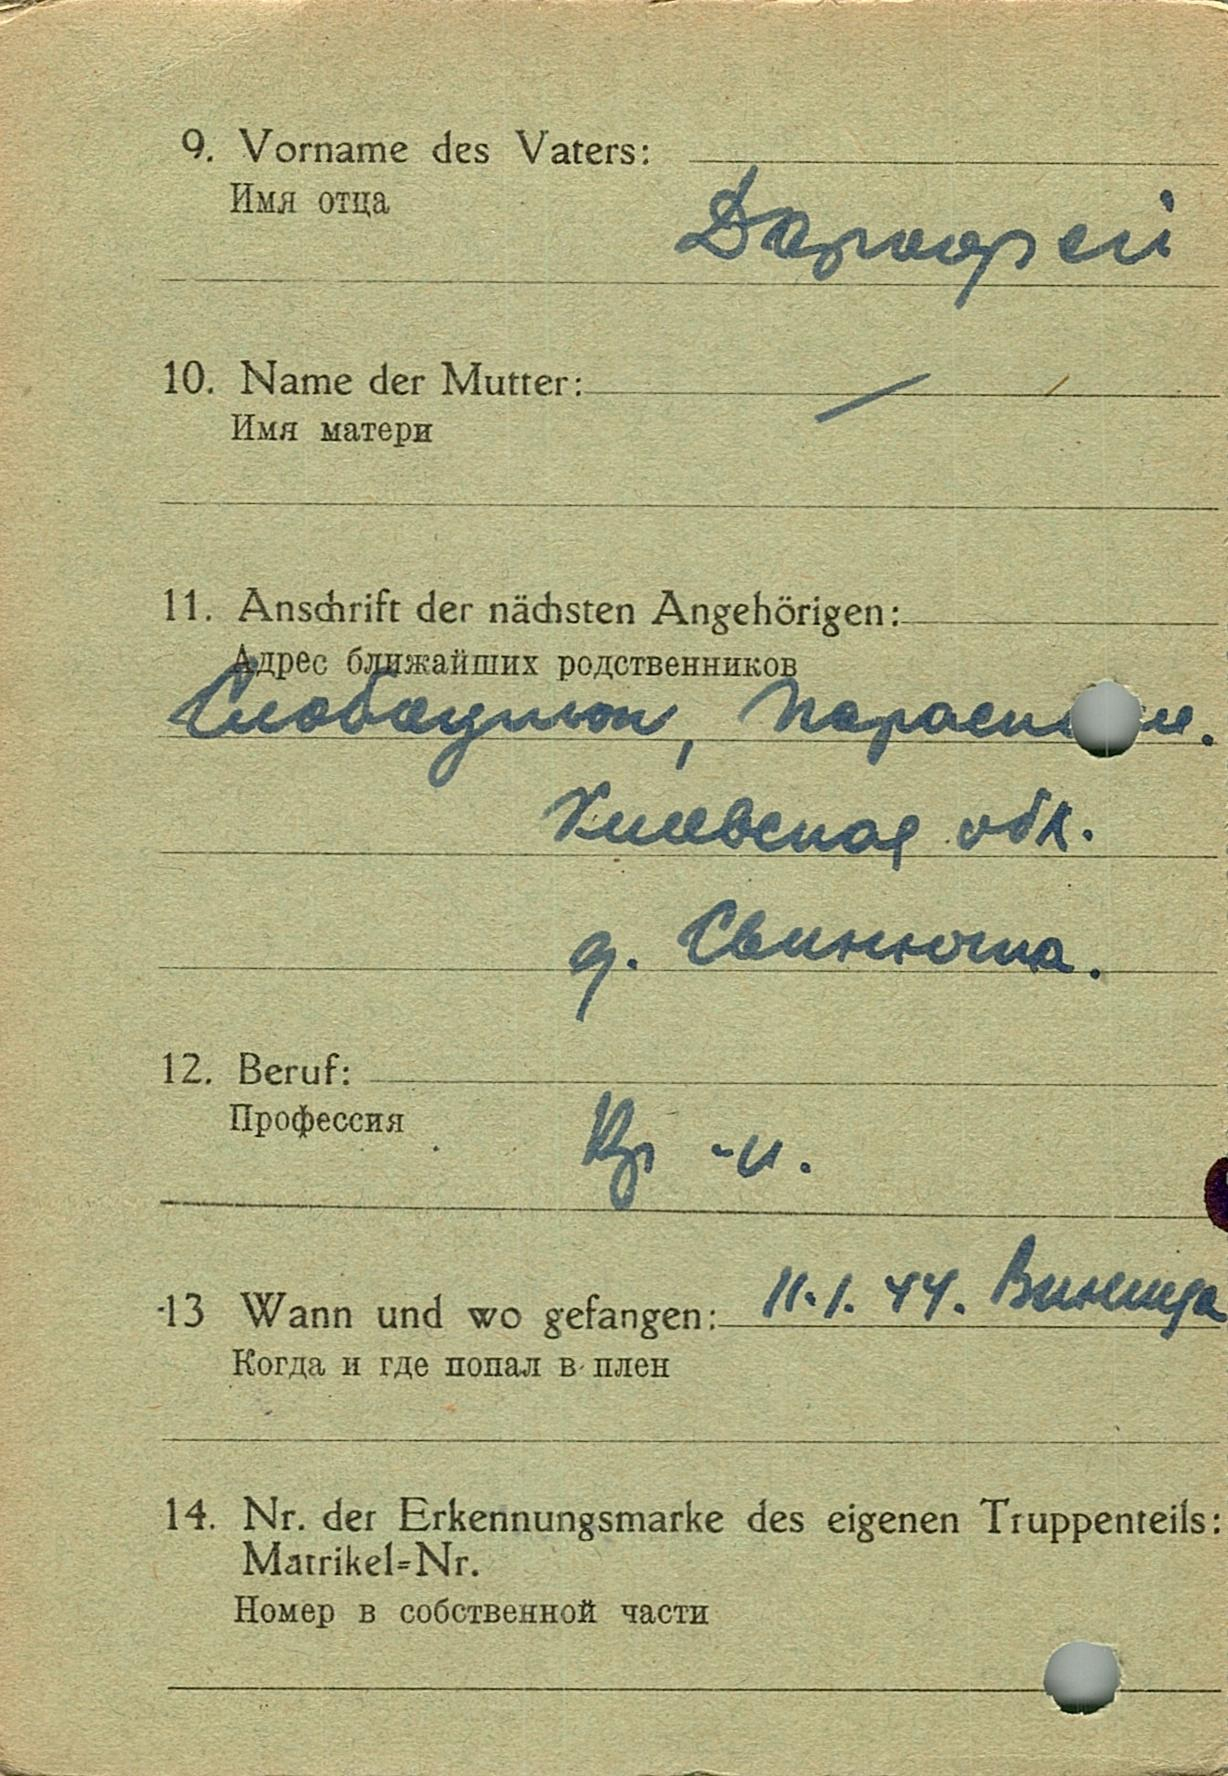 9. Vorname des Vaters:
Имя отца
10. Name der Mutter:
Имя матери
11. Anschrift der nächsten Angehörigen:
Адрес ближайших родственников
Киевская обл.
д. Свинюха.
12. Beruf:
Профессия
Кр -н.
13 Wann und wo gefangen: 11.1.44. Винница
Когда и где попал в плен
14. Nr. der Erkennungsmarke des eigenen Truppenteils:
Matrikel=Nr.
Номер в собственной части